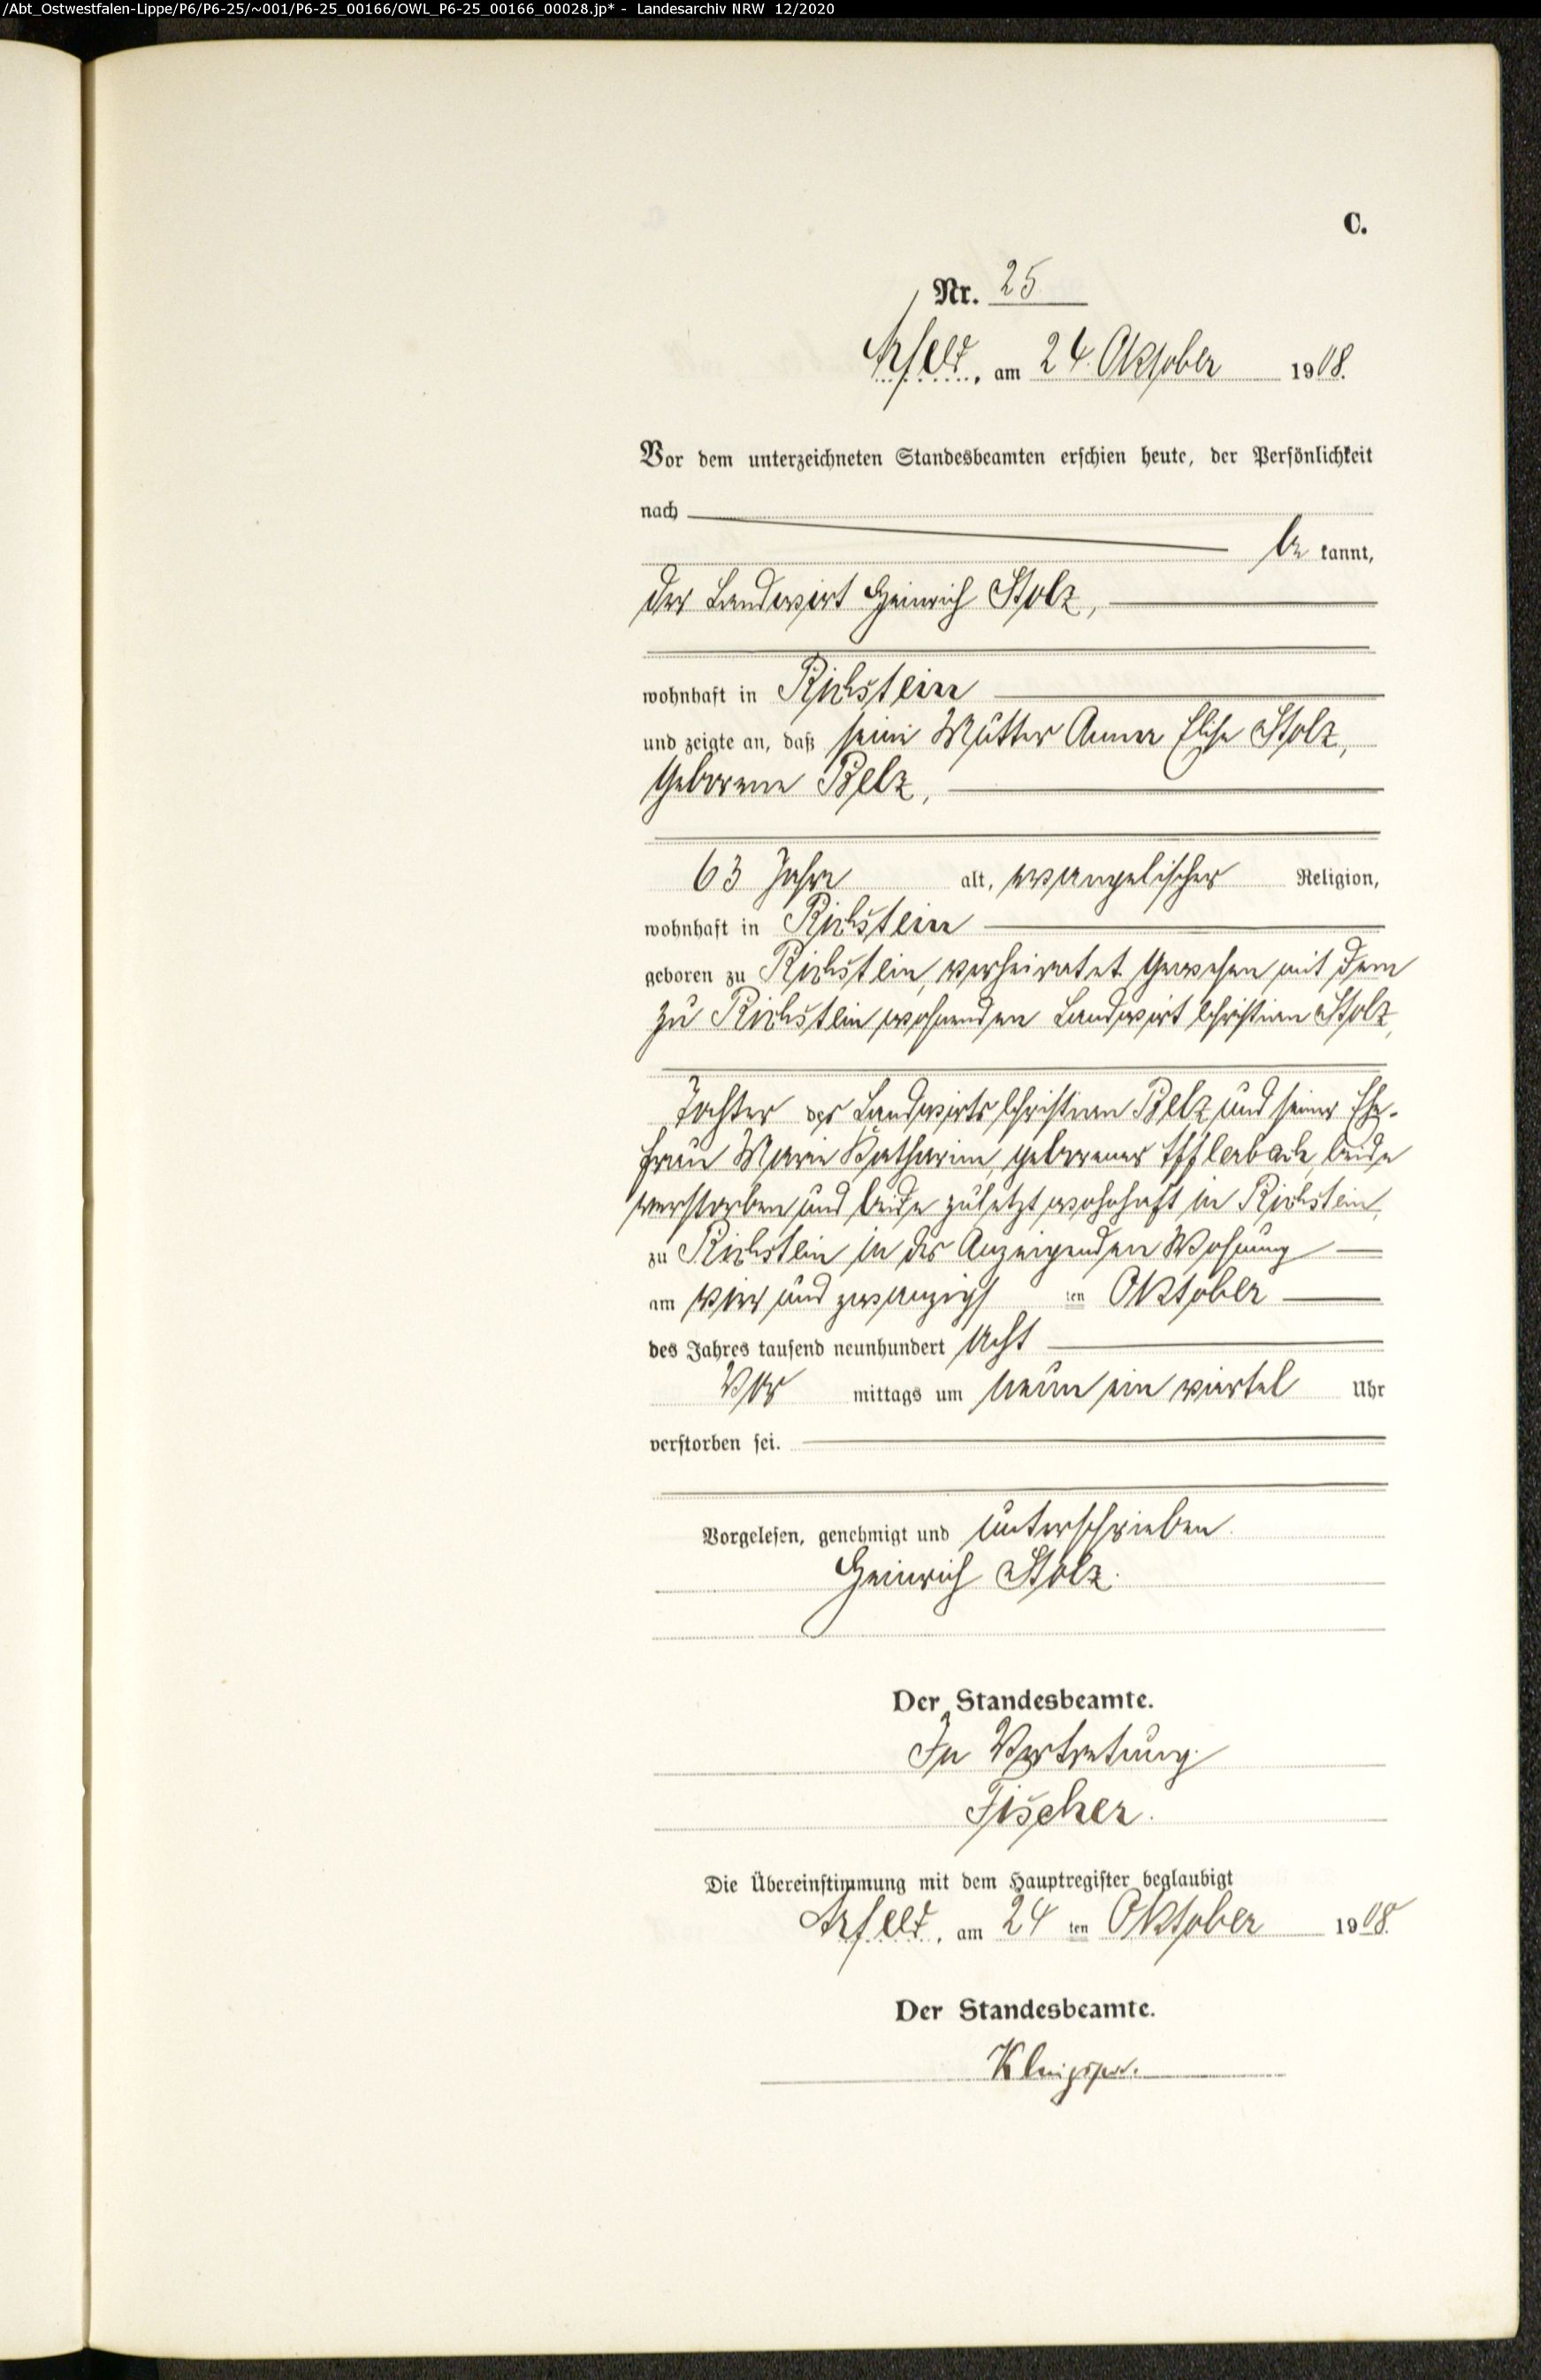 /Abt_Ostwestfalen-Lippe/P6/P6-25/~001/P6-25_00166/OWL_P6-25_00166_00028.jp* - Landesarchiv NRW 12/2020
C.
Nr. 25
Arfeld, am 24. Oktober 1908.
Vor dem unterzeichneten Standesbeamten erschien heute, der Persönlichkeit
nach
be kannt,
der Landwirt Heinrich Stolz,
wohnhaft in Richstein
und zeigte an, daß seine Mutter Anna Elise Stolz,
geborene Belz,
63 Jahre alt, evangelischer Religion,
wohnhaft in Richstein
geboren zu Richstein, verheiratet gewesen mit dem
zu Richstein wohnenden Landwirt Christian Stolz,
Tochter des Landwirts Christian Belz und seiner Ehe-
frau Marie Katharine, geborener Afflerbach, beide
verstorben und beide zuletzt wohnhaft in Richstein,
zu Richstein in des Anzeigenden Wohnung
am vier und zwanzigs ten Oktober
des Jahres tausend neunhundert acht
Vor mittags um neun ein viertel Uhr
verstorben sei.
Vorgelesen, genehmigt und unterschrieben.
Heinrich Stolz.
Der Standesbeamte.
In Vertretung.
Fischer.
Die Übereinstimmung mit dem Hauptregister beglaubigt
Arfeld, am 24 ten Oktober 1908.
Der Standesbeamte.